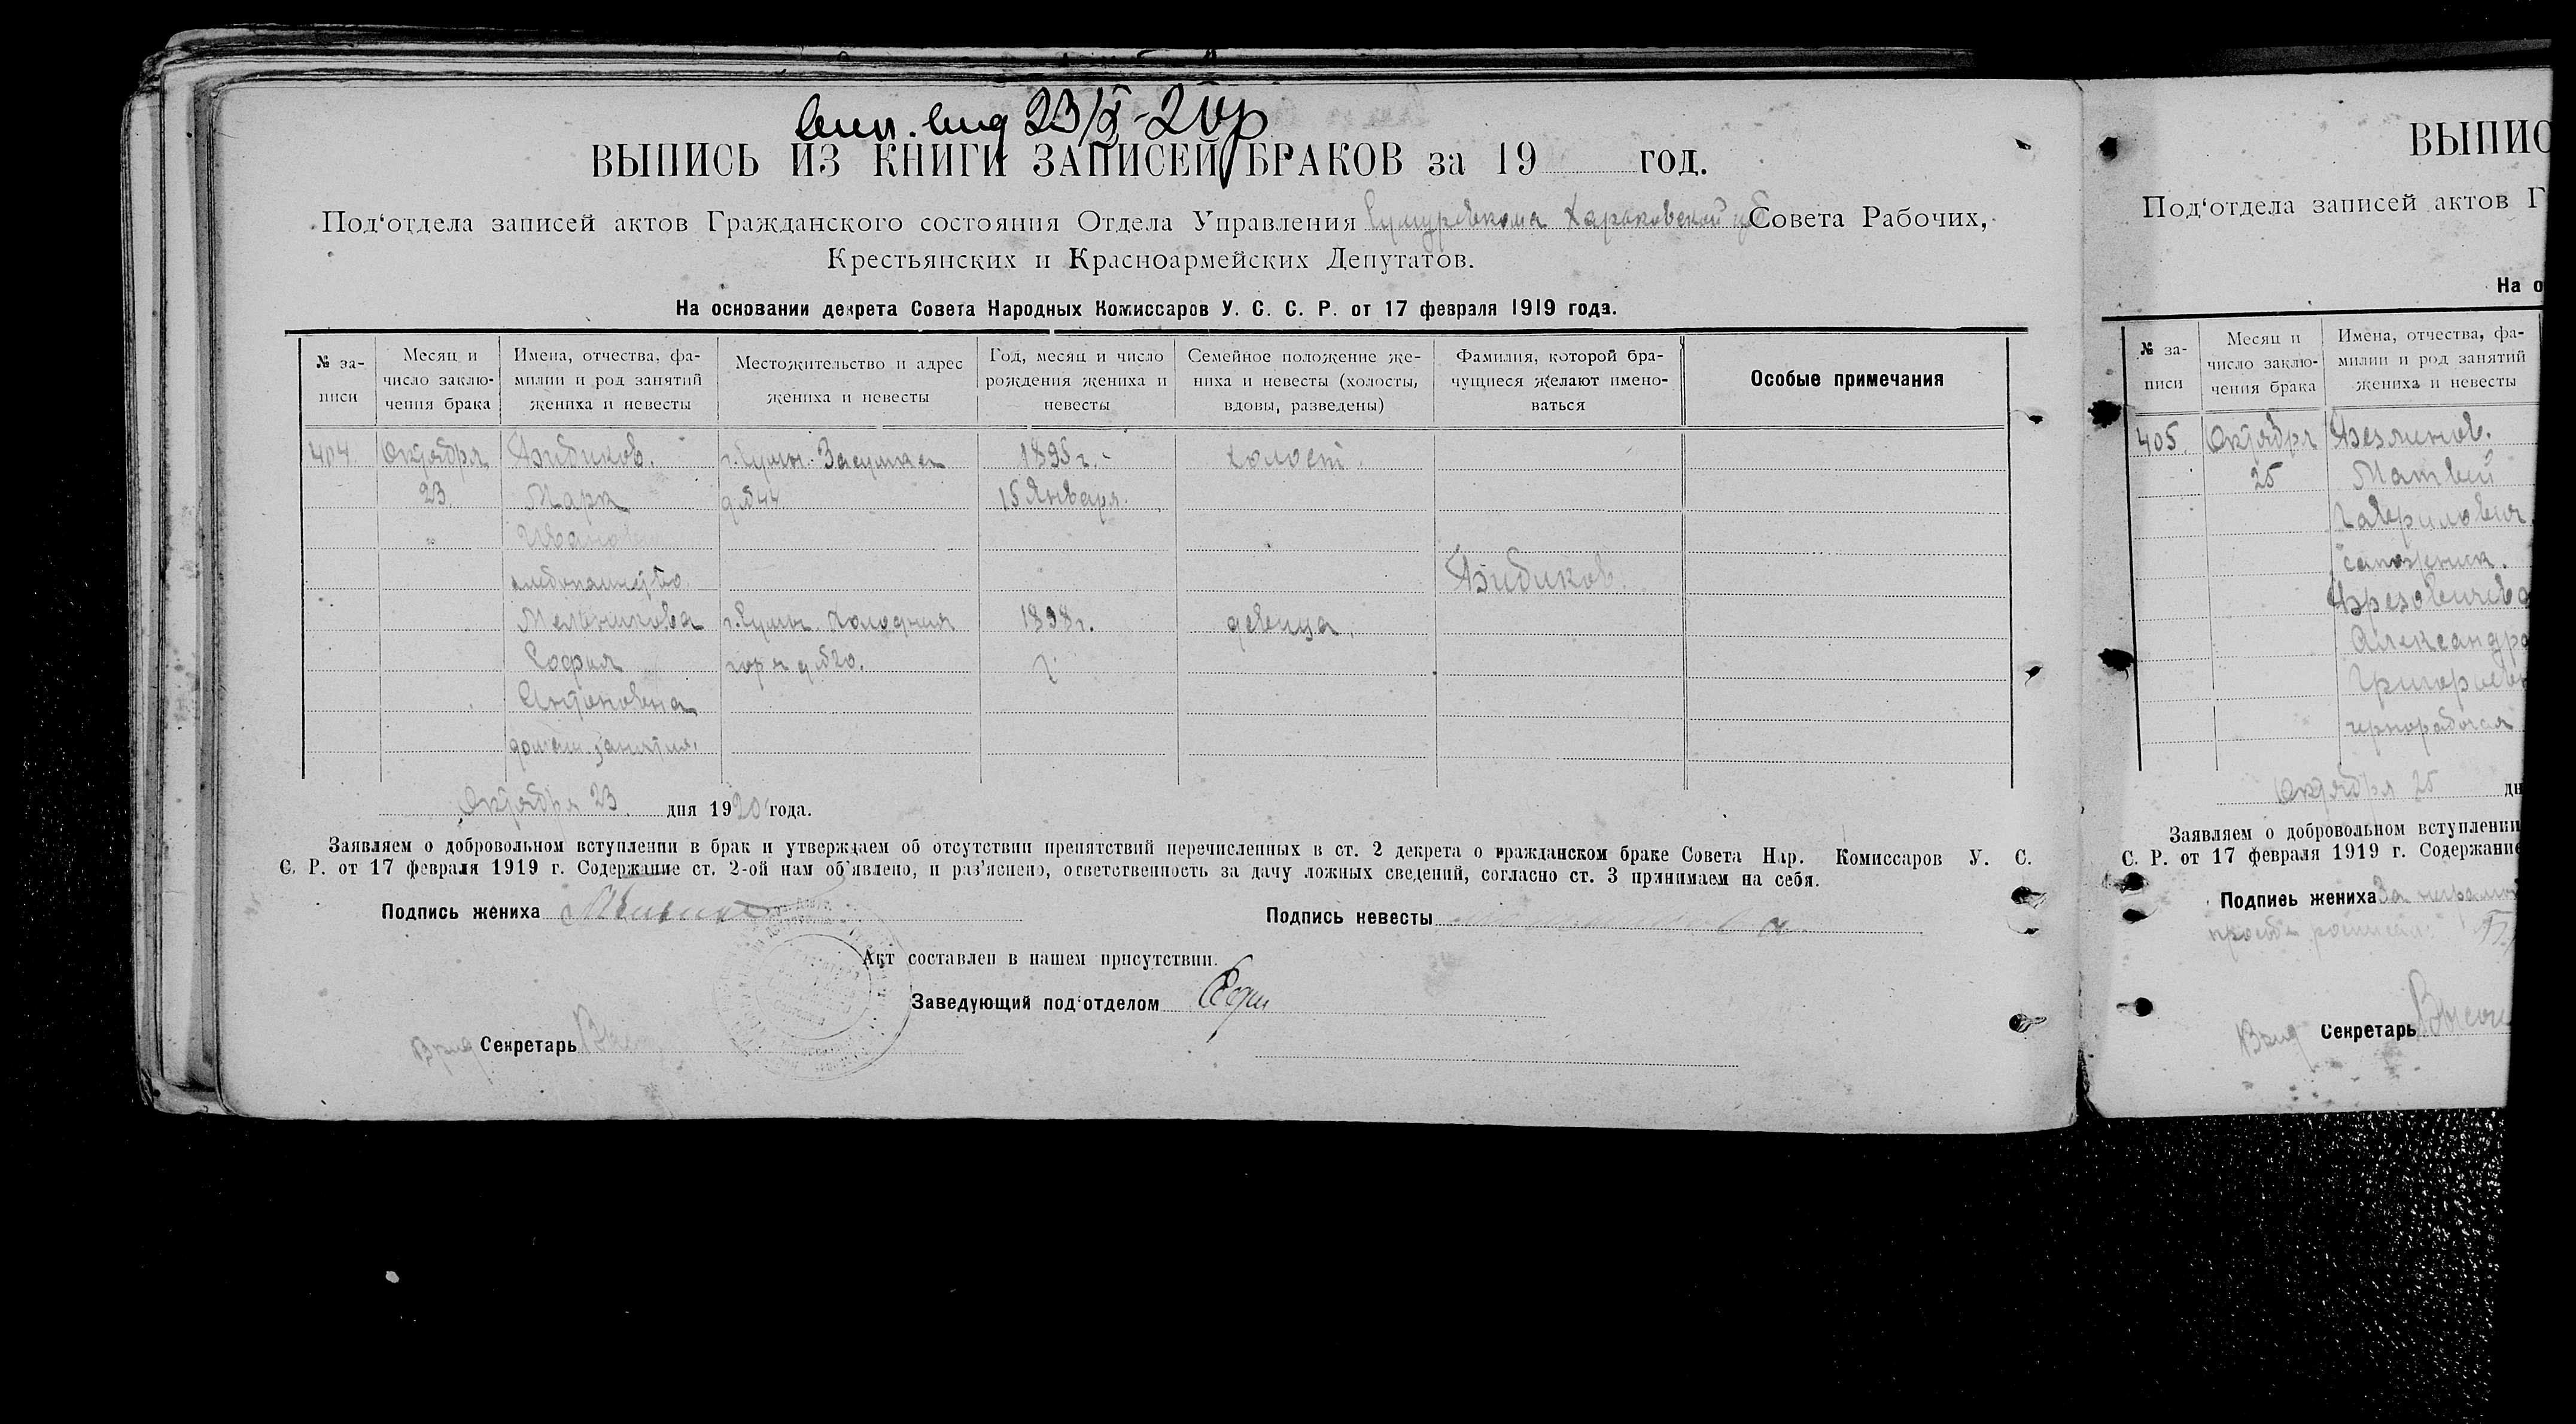 23/X-20 р
ВЫПИСЬ ИЗ КНИГИ ЗАПИСЕЙ БРАКОВ за 19 год.
Под‘отдела записей актов Гражданского состояния Отдела Управления Харьковской Совета Рабочих,
Крестьянских и Красноармейских Депутатов.
На основании декрета Совета Народных Комиссаров У. С. С. Р. от 17 февраля 1919 года.
№ за-
писи
Месяц и
число заклю-
чения брака
Имена, отчества, фа-
милии и род занятий
жениха и невесты
Местожительство и адрес
жениха и невесты
Год, месяц и число
рождения жениха и
невесты
Семейное положение же-
ниха и невесты (холосты,
вдовы, разведены)
Фамилия, которой бра-
чущиеся желают имено-
ваться
Особые примечания
404. Октября Бибиков. г. Сумы 1895 г. холост.
23. Марк д. № 44 15 Января.
Иванович
хлебопашество. Бибиков.
Мельникова г. Сумы Холодная 1898 г. девица.
София гора д. № 20.
Антоновна
домаш. занятия.
Октября 23 дня 1920 года.
Заявляем о добровольном вступлении в брак и утверждаем об отсутствии препятствий перечисленных в ст. 2 декрета о гражданском браке Совета Нар. Комиссаров У. С.
С. Р. от 17 февраля 1919 г. Содержание ст. 2-ой нам об‘явлено, и раз‘яснено, ответственность за дачу ложных сведений, согласно ст. 3 принимаем на себя.
Подпись жениха
Подпись невесты
Акт составлен в нашем присутствии.
Заведующий под‘отделом
Врид Секретарь
ВЫПИС
Под‘отдела записей актов Г
На о
№ за-
писи
Месяц и
число заклю-
чения брака
Имена, отчества, фа-
милии и род занятий
жениха и невесты
405. Октября
25 Матвей
Гаврилович
сапожник.
Александра
Григорьевн
чернорабочая
Октября 25 дн
Заявляем о добровольном вступлении
С. Р. от 17 февраля 1919 г. Содержание
Подпись жениха За неграмот
Врид Секретарь